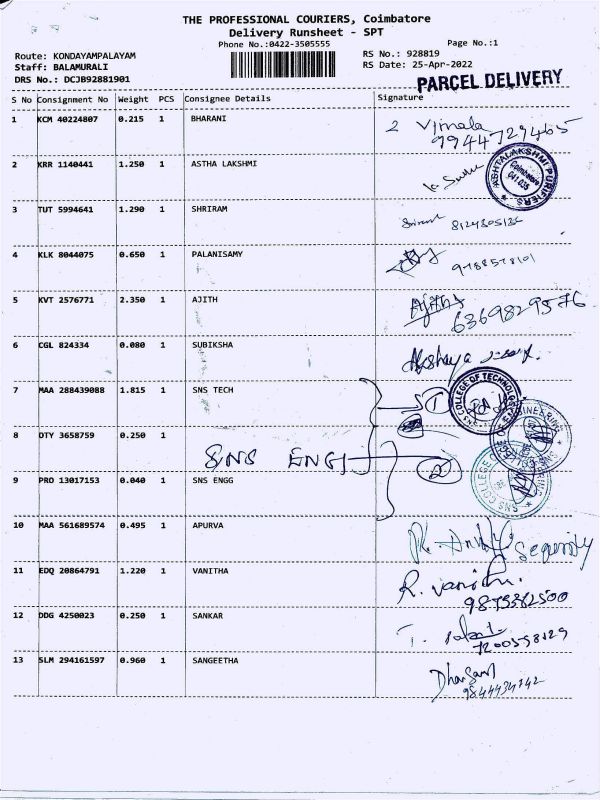 THE PROFESSIONAL COURIERS, Coimbatore
Delivery Runsheet - SPT
Phone No.:0422-3505555
Page No.:1
Route: KONDAYAMPALAYAM
Staff: BALAMURALI
DRS No.: DCJB92881901
RS No.: 928819
RS Date: 25-Apr-2022
PARCEL DELIVERY
S No Consignment No Weight PCS Consignee Details Signature
1 KCM 40224807 0.215 1 BHARANI 2 Vimala
9944729465
2 KRR 1140441 1.250 1 ASTHA LAKSHMI
ASHTALAKSHMI PURIFIERS Coimbatore 641 035
3 TUT 5994641 1.290 1 SHRIRAM
4 KLK 8044075 0.650 1 PALANISAMY
5 KVT 2576771 2.350 1 AJITH Ajith
6369829576
6 CGL 824334 0.080 1 SUBIKSHA Akshaya
7 MAA 288439088 1.815 1 SNS TECH 1
SNS COLLEGE OF TECHNOLOGY
8 DTY 3658759 0.250 1 SNS ENGG 2
9 PRO 13017153 0.040 1 SNS ENGG
SNS COLLEGE OF ENGINEERING
10 MAA 561689574 0.495 1 APURVA Security
11 EDQ 20864791 1.220 1 VANITHA R. Vanitha
12 DDG 4250023 0.250 1 SANKAR
13 SLM 294161597 0.960 1 SANGEETHA